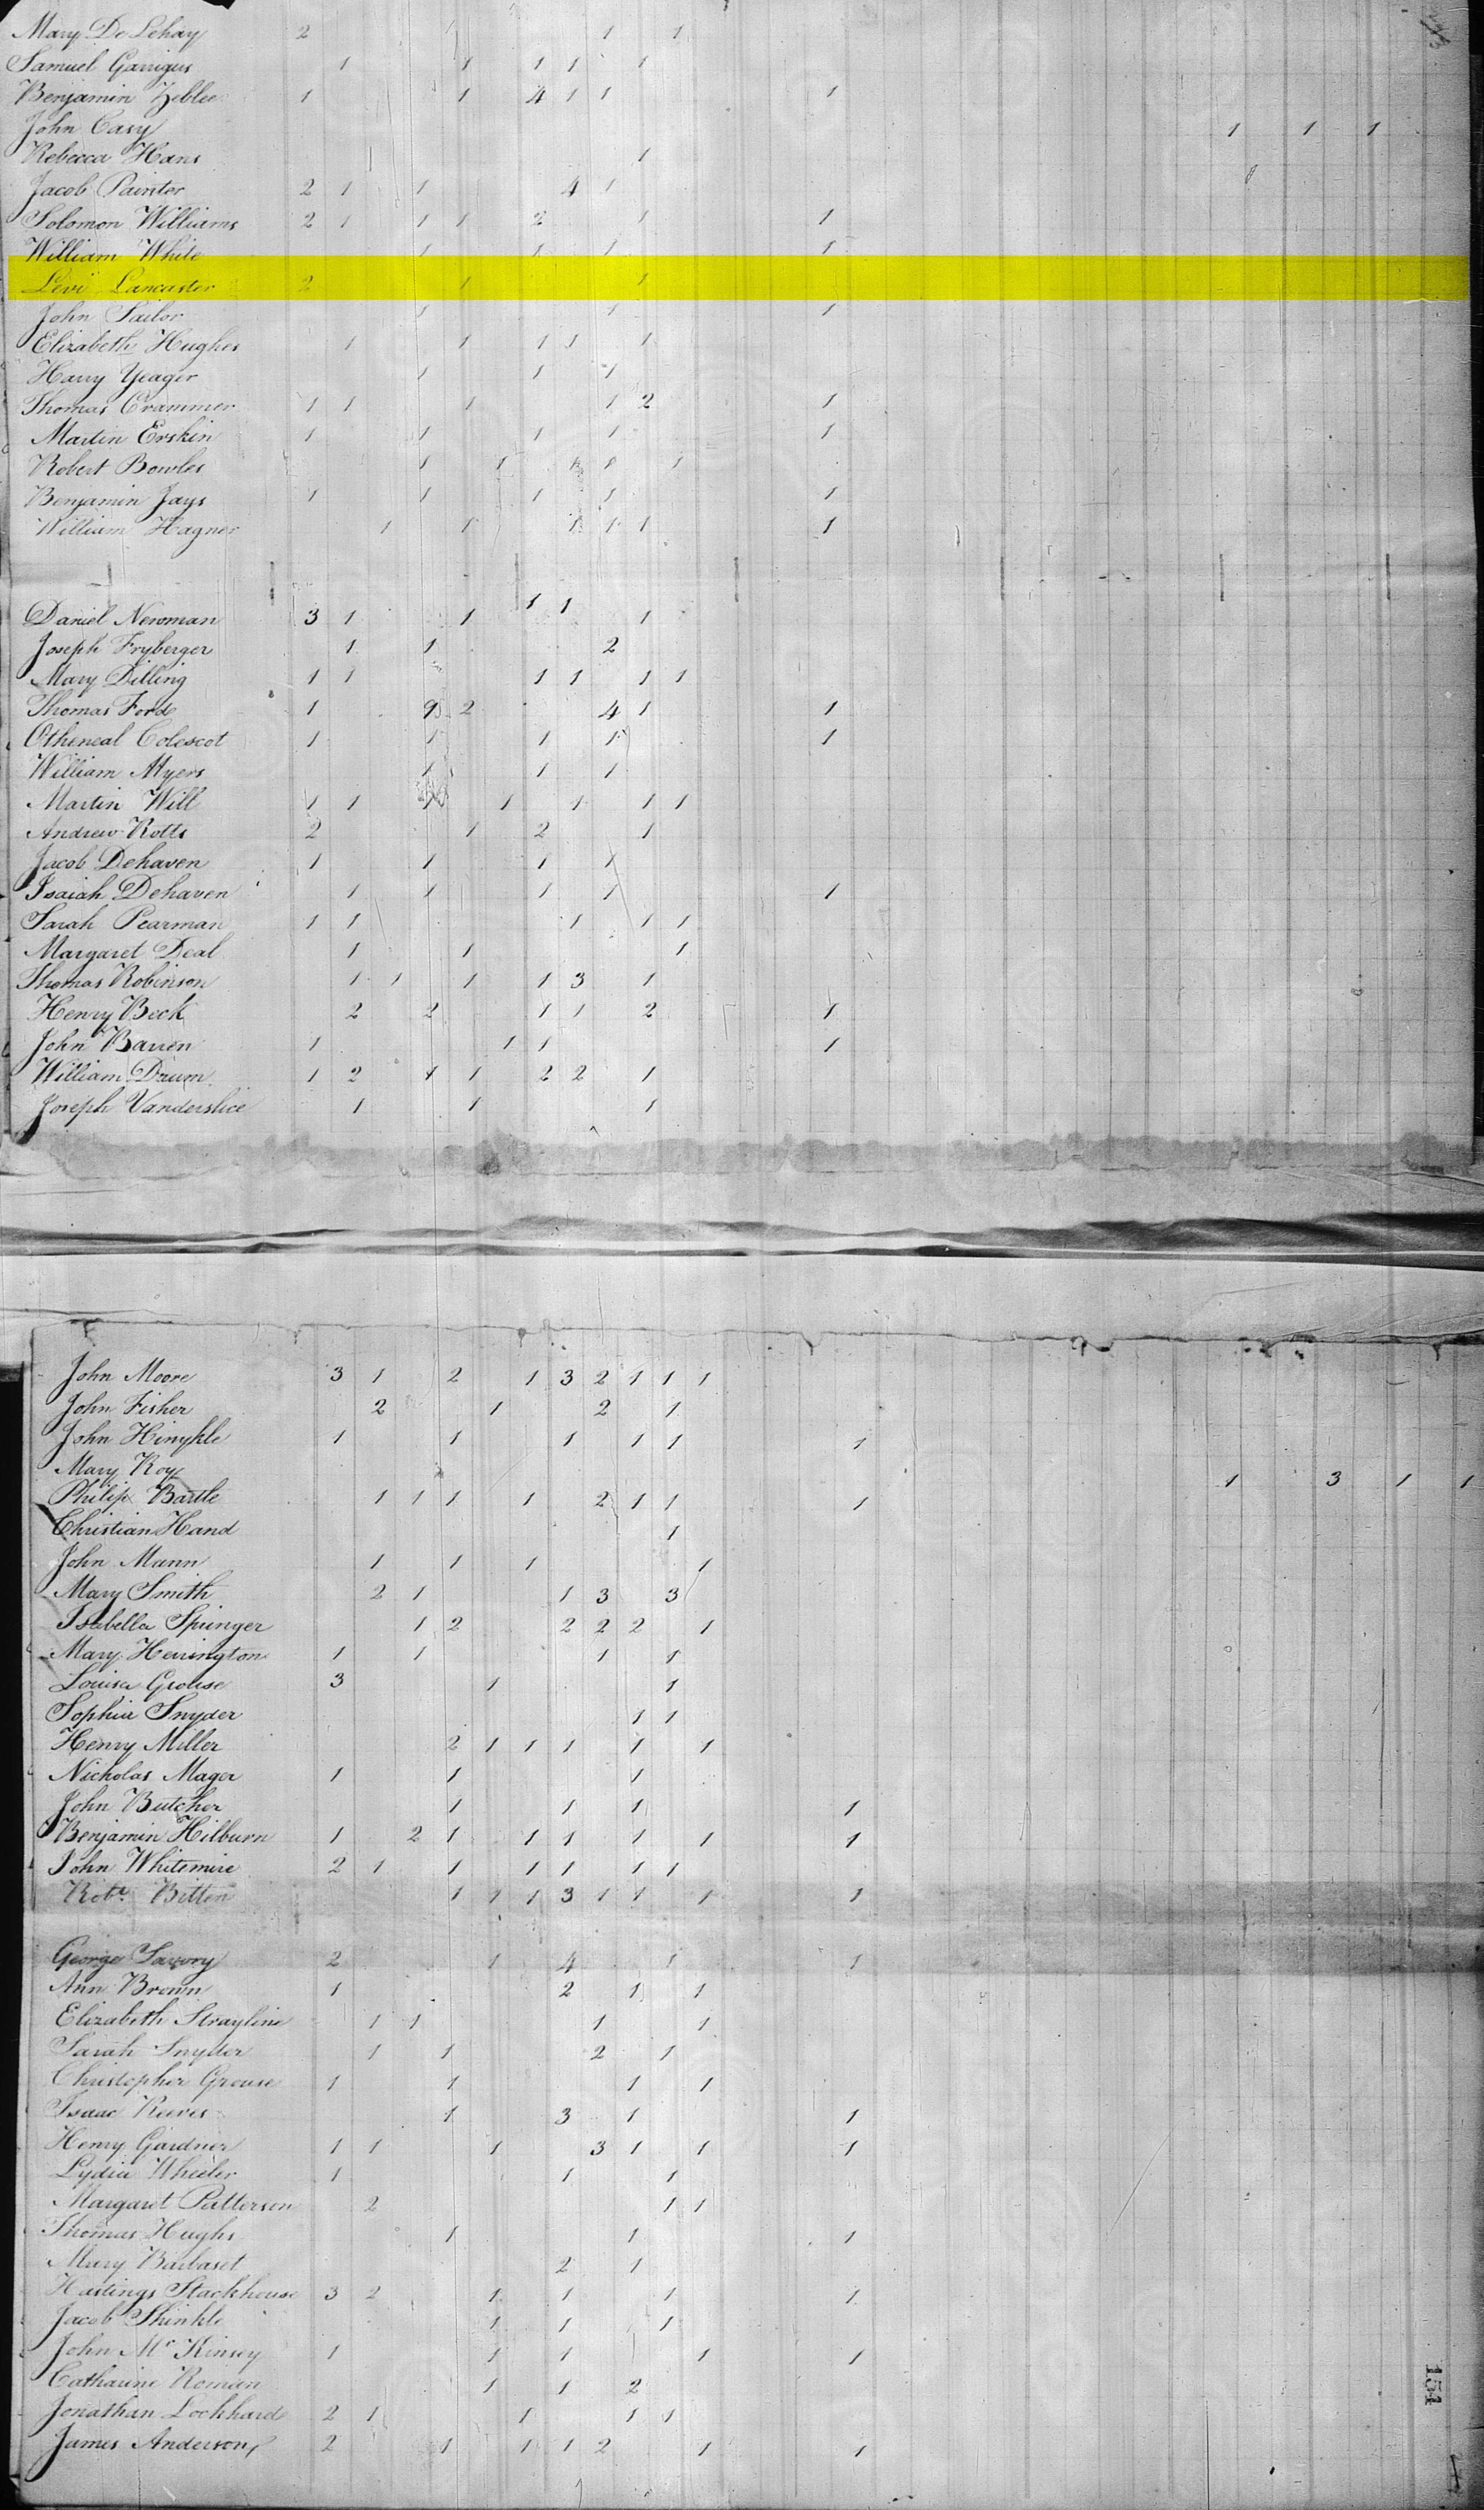 Mary De Lehay 2 1 1 1
Samuel Garrigus 1 1 1 1 1
Benjamin Zeblee 1 1 4 1 1 1
John Casy 1 1 1
Rebecca Hans 1
Jacob Painter 2 1 1 4 1
Solomon Williams 2 1 1 1 2 1 1
William White 1 1 1 1
Levi Lancaster 2 1 1
John Sailor 1 1 1
Elizabeth Hughes 1 1 1 1 1
Harry Yeager 1 1 1
Thomas Crammer 1 1 1 1 2 1
Martin Erskin 1 1 1 1 1
Robert Bowles 1 1 1 1 1
Benjamin Jays 1 1 1 1 1
William Hagner 1 1 1 1 1 1
Daniel Newman 3 1 1 1 1 1
Joseph Fryberger 1 1 2
Mary Dilling 1 1 1 1 1 1
Thomas Ford 1 9 2 4 1 1
Otheneal Colescot 1 1 1 1 1
William Myers 1 1 1
Martin Will 1 1 1 1 1 1 1
Andrew Rotts 2 1 2 1
Jacob Dehaven 1 1 1 1
Isaiah Dehaven 1 1 1 1 1
Sarah Pearman 1 1 1 1 1
Margaret Deal 1 1 1
Thomas Robinson 1 1 1 1 3 1
Henry Beck 2 2 1 1 2 1
John Barren 1 1 1 1
William Daum 1 2 1 1 2 2 1
Joseph Vanderslice 1 1 1
John Moore 3 1 2 1 3 2 1 1 1
John Fisher 2 1 2 1
John Hinykle 1 1 1 1 1 1
Mary Roy 1 3 1 1
Philip Bartle 1 1 1 1 2 1 1 1
Christian Hand 1
John Mann 1 1 1 1
Mary Smith 2 1 1 3 3
Isabella Springer 1 2 2 2 2 1
Mary Herrington 1 1 1 1
Louisa Grouse 3 1 1
Sophia Snyder 1 1
Henry Miller 2 1 1 1 1 1
Nicholas Mager 1 1 1
John Butcher 1 1 1 1
Benjamin Hilburn 1 2 1 1 1 1 1 1
John Whitemire 2 1 1 1 1 1 1
Robt. Bitten 1 1 1 3 1 1 1 1
George Savory 2 1 4 1 1
Ann Brown 1 2 1 1
Elizabeth Strayline 1 1 1 1
Sarah Snyder 1 1 2 1
Christopher Grouse 1 1 1 1
Isaac Reeves 1 3 1 1
Henry Gardner 1 1 1 3 1 1 1
Lydia Wheeler 1 1 1
Margaret Patterson 2 1 1
Thomas Hughs 1 1 1
Mary Barbaset 2 1
Hastings Stackhouse 3 2 1 1 1 1
Jacob Shinkle 1 1 1
John McKinsey 1 1 1 1 1
Catharine Roman 1 1 2
Jonathan Lockhard 2 1 1 1 1
James Anderson 2 1 1 1 2 1 1
154